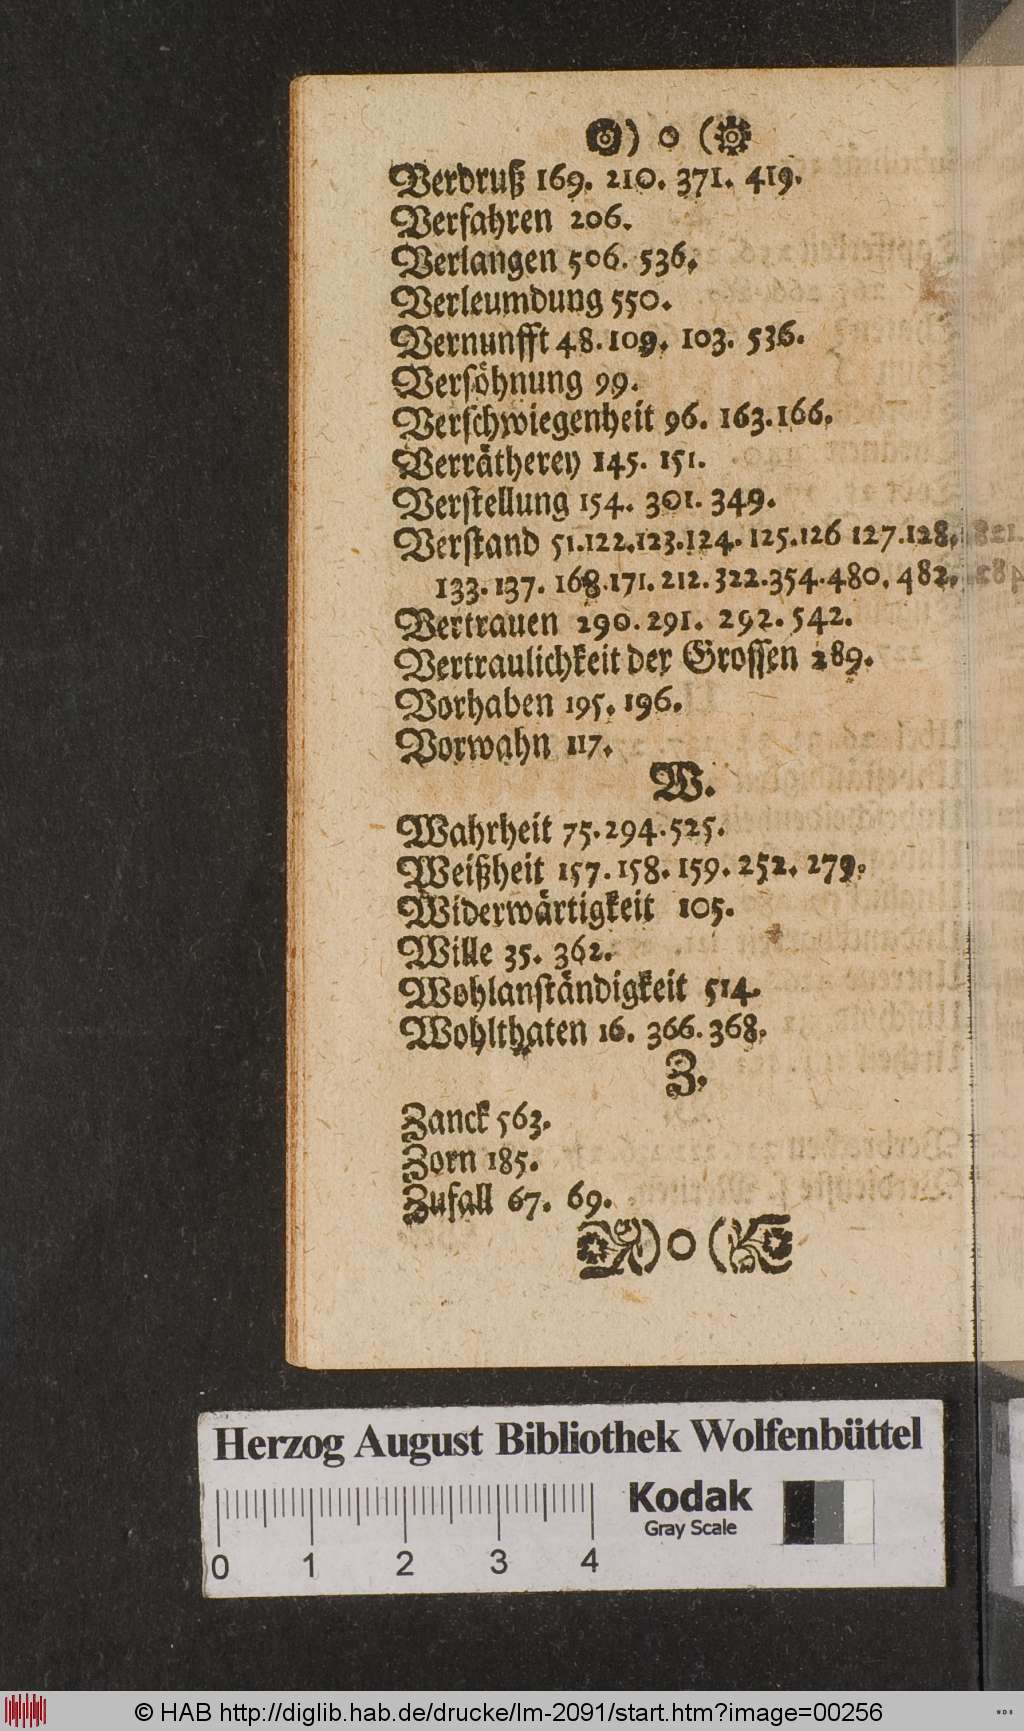 ) o (
Verdruß 169. 210. 371. 419.
Verfahren 206.
Verlangen 506. 536.
Verleumdung 550.
Vernunfft 48. 109. 103. 536.
Versöhnung 99.
Verschwiegenheit 96. 163. 166.
Verrätherey 145. 151.
Verstellung 154. 301. 349.
Verstand 51. 122. 123. 124. 125. 126 127. 128.
133. 137. 168. 171. 212. 322. 354. 480. 482.
Vertrauen 290. 291. 292. 542.
Vertraulichkeit der Grossen 289.
Vorhaben 195. 196.
Vorwahn 117.
W.
Wahrheit 75. 294. 525.
Weißheit 157. 158. 159. 252. 279.
Widerwärtigkeit 105.
Wille 35. 362.
Wohlanständigkeit 514.
Wohlthaten 16. 366. 368.
Z.
Zanck 563.
Zorn 185.
Zufall 67. 69.
) o (
Herzog August Bibliothek Wolfenbüttel
Kodak
Gray Scale
0 1 2 3 4
© HAB http://diglib.hab.de/drucke/lm-2091/start.htm?image=00256